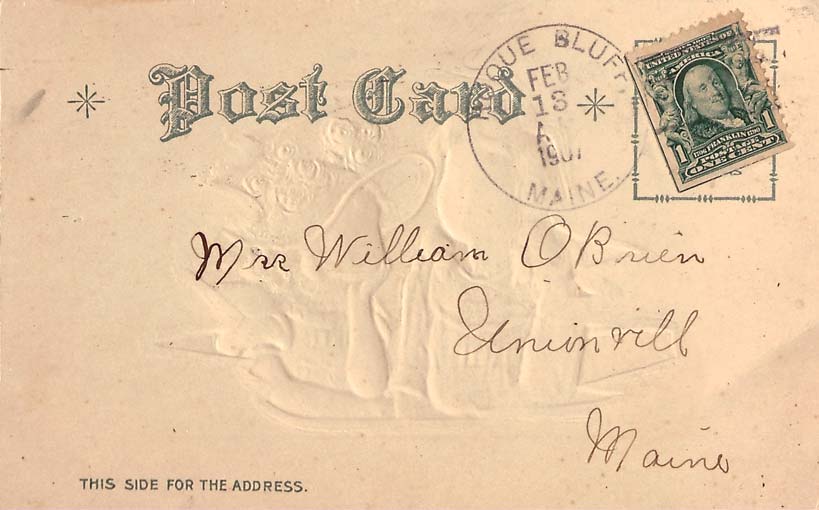 Post Card
QUE BLUFF
FEB
13
A
1907
MAINE.
UNITED STATES OF
AMERICA
1706 FRANKLIN 1790
POSTAGE
1 ONE CENT 1
Mrs William O Brien
Unionvill
Maine
THIS SIDE FOR THE ADDRESS.